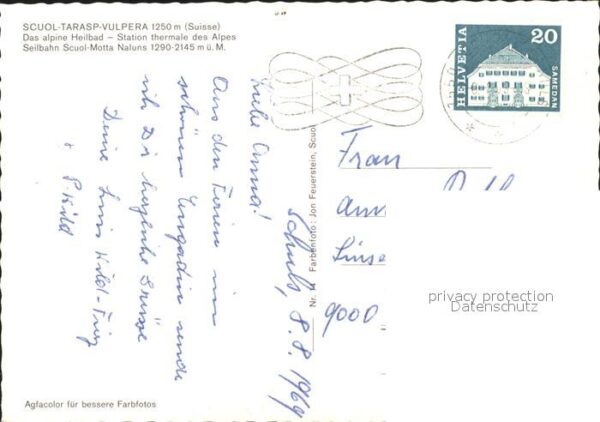 SCUOL-TARASP-VULPERA 1250 m (Suisse)
Das alpine Heilbad – Station thermale des Alpes
Seilbahn Scuol-Motta Naluns 1290-2145 m ü. M.
HELVETIA
20
SAMEDAN
Schuls, 8.8.1969
Liebe Anna!
Aus den Ferien im
schönen Engadin sende
ich Dir herzliche Grüsse
Deine
+ P. Wild
Nr. 14 Farbenfoto: Jon Feuerstein, Scuol
Frau
9000
privacy protection
Datenschutz
Agfacolor für bessere Farbfotos